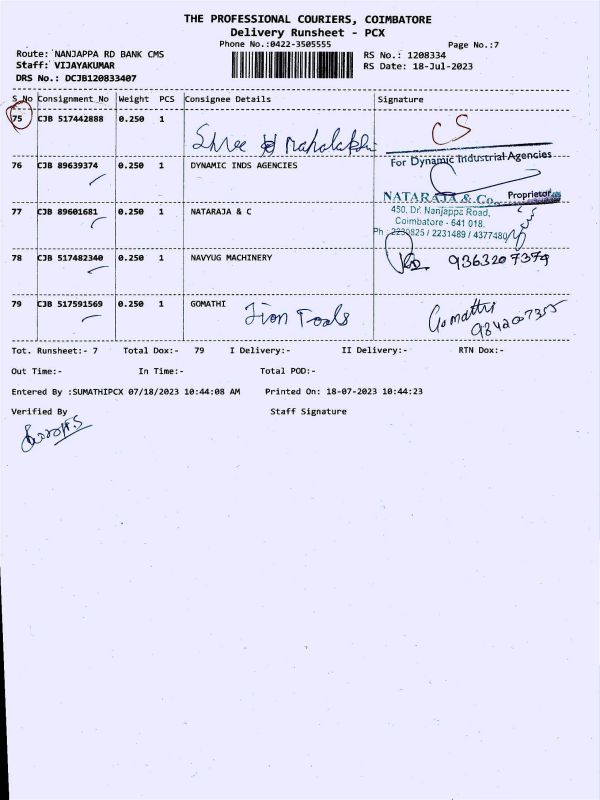 THE PROFESSIONAL COURIERS, COIMBATORE
Delivery Runsheet - PCX
Phone No.:0422-3505555
Page No.:7
Route: NANJAPPA RD BANK CMS
RS No.: 1208334
Staff: VIJAYAKUMAR
RS Date: 18-Jul-2023
DRS No.: DCJB120833407
S No Consignment_No Weight PCS Consignee Details Signature
75 CJB 517442888 0.250 1 CS
Shree Mahalakshmi
For Dynamic Industrial Agencies
76 CJB 89639374 0.250 1 DYNAMIC INDS AGENCIES
Proprietor
NATARAJA & Co.,
77 CJB 89601681 0.250 1 NATARAJA & C
450, Dr. Nanjappa Road,
Coimbatore - 641 018.
Ph : 2230825 / 2231489 / 4377480
78 CJB 517482340 0.250 1 NAVYUG MACHINERY
9363207379
79 CJB 517591569 0.250 1 GOMATHI
Tion Tools
Gomathi
9842007355
Tot. Runsheet:- 7 Total Dox:- 79 I Delivery:- II Delivery:- RTN Dox:-
Out Time:- In Time:- Total POD:-
Entered By :SUMATHIPCX 07/18/2023 10:44:08 AM Printed On: 18-07-2023 10:44:23
Verified By Staff Signature